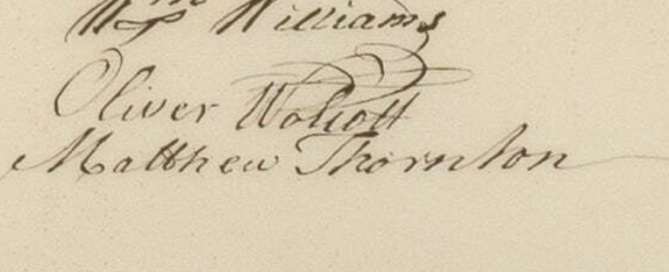 Wm Williams
Oliver Wolcott
Matthew Thornton